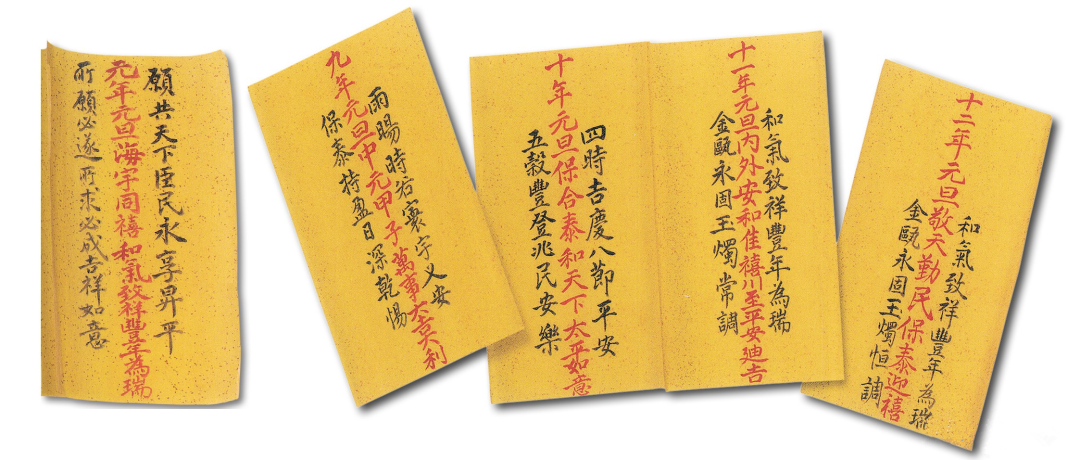 願共天下臣民永享昇平
元年元旦海宇同禧和氣致祥豐年為瑞
所願必遂所求必成吉祥如意
雨暘時若寰宇乂安
九年元旦中元甲子萬事大吉大利
保泰持盈日深乾惕
四時吉慶八節平安
十年元旦保合泰和天下太平如意
五穀豐登兆民安樂
和氣致祥豐年為瑞
十一年元旦內外安和佳禧川至平安迪吉
金甌永固玉燭常調
和氣致祥豐年為瑞
十二年元旦敬天勤民保泰迎禧
金甌永固玉燭恒調